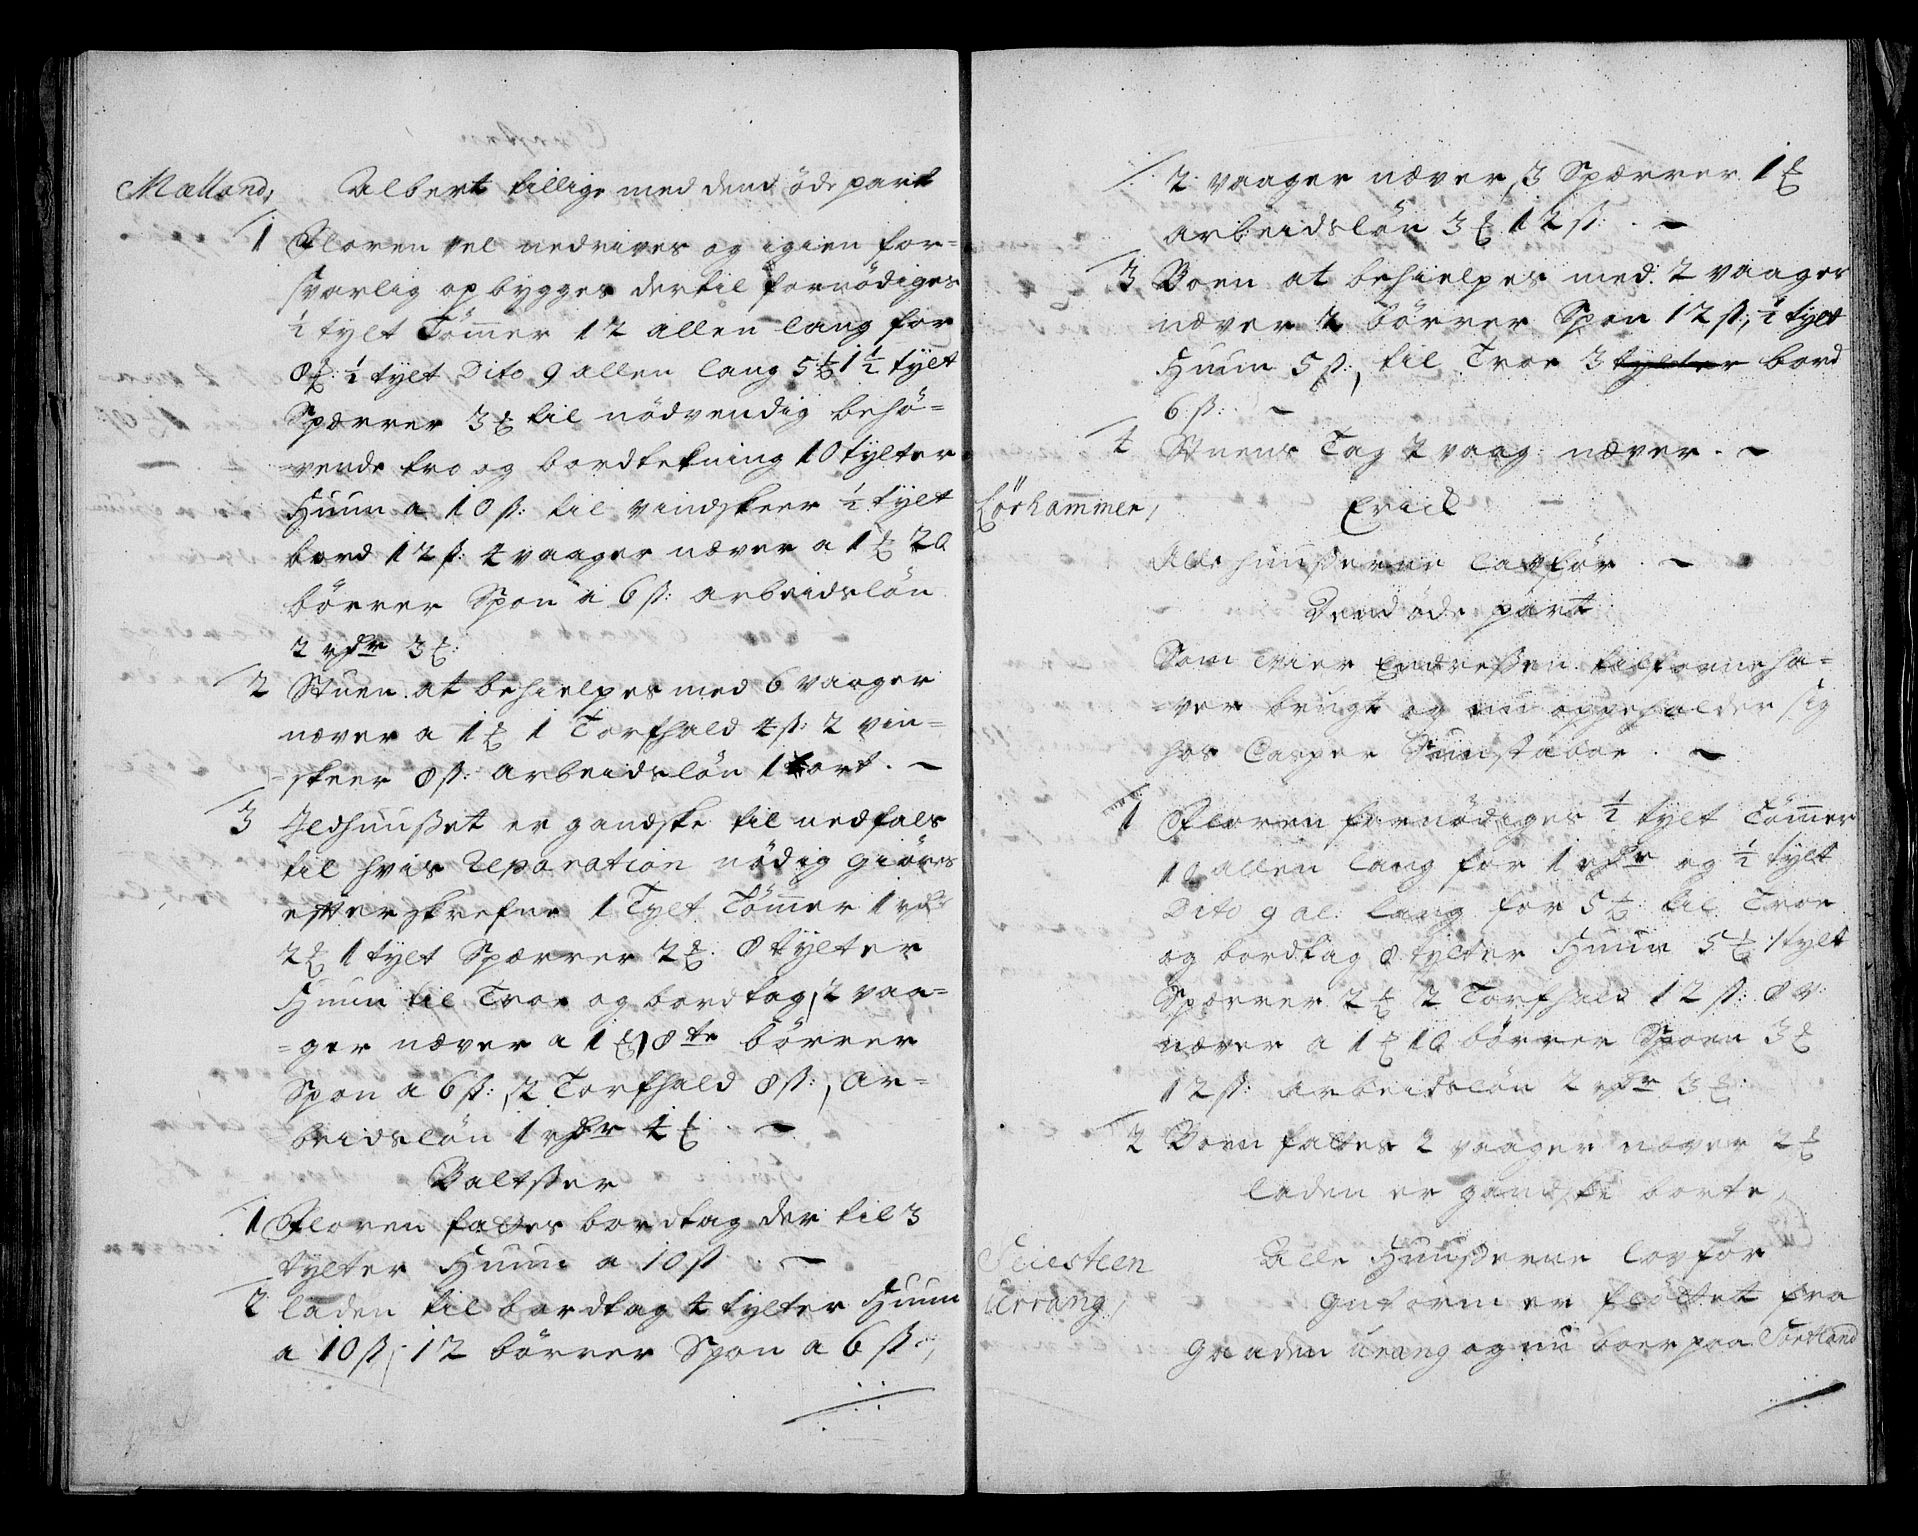 Malland, Albert tillige med dend öde part
1 Floren vel nedrives og igien for-
svarlig opbygges dertil fornödiges
½ tylt Tömer 12 allen lang for
8 ½ tylt Dito 9 allen lang 5 1½ tylt
Spærrer 3 til nödvendig behö-
vende tro og bordtekning 10 tylter
Huun a 10 ß: til vindskeer ½ tylt
bord 12 ß: 4 vaager næver a 1 20
börrer Spon a 6 ß: arbeidslön
2 rdr 3
2 Stuen at behielpes med 6 vaager
næver a 1 1 Torfhald 4 ß: 2 vin-
skeer 8 ß: arbeidslön 1 ort. -
3 Ildhuuset er gandske til nedfals
til hvis Reparation nödig giöres
efterskrefne 1 Tylt Tömer 1 rdr
2 1 tylt Spærrer 2 8 tylter
Huun til Troe og bordtag, 2 vaa-
=ger næver a 1 8te börrer
Spon a 6 ß:, 2 Torfhald 8 ß:, Ar-
beidslön 1 rdr 4 -
Baltsser
1 Floren fattes bordtag der til 3
tylter Huun a 10 ß -
2 laden til bordtag 4 tylter Huun
a 10 ß, 12 börrer Spon a 6 ß:,
2 vaager næver, 3 Spærrer 1
arbeidslön 3 12 ß: -
3 Boen at behielpes med 2 vaager
næver 2 börrer Spon 12 ß, ½ tylt
Huun 5 ß:, til Troe 3 tylter bord
6 ß: -
4 Stuens Tag 2 vaag næver. -
Lörhammer, Erick
Alle huuserne lavför. -
Dend öde part
Som Endressen tilforne ha-
ver brugt og nu oppeholder sig
hos Casper -
1 Floren fornödiges ½ tylt Tömer
10 allen lang for 1 rdr og ½ tylt
Dito 9 al: lang for 5 til Troe
og bordtag 8 tylter Huun 5 1 tylt
Spærrer 2 2 Torfhald 12 ß: 8 v:
næver a 1 10 börrer Spoen 3
12 ß: arbeidslön 2 rdr 3
2 Boen fattes 2 vaager næver 2
laden er gandske borte,
Seiesteen Alle Huuserne lovför
Urrang, Gutorm er flöttet fra
Gaaden Urang og nu boer paa Sortland